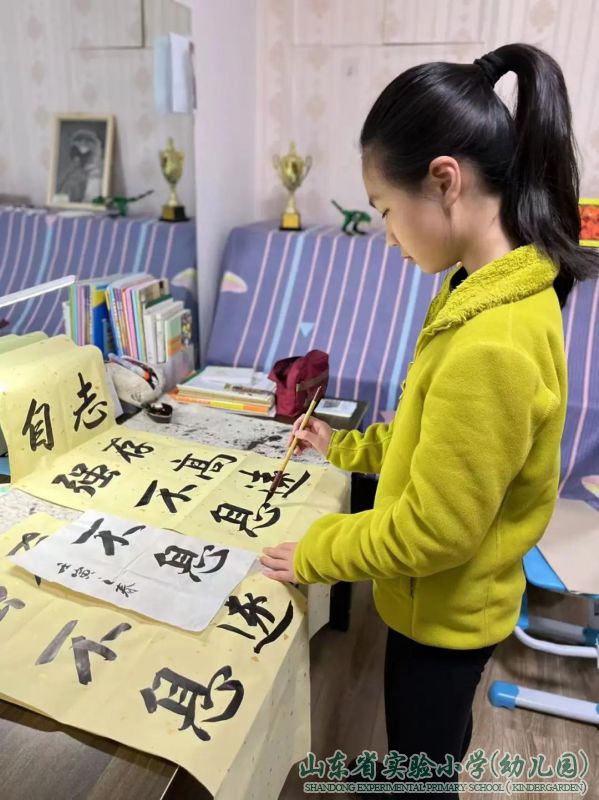 志存高遠
自强不息
不息
遠
不息
山东省实验小学(幼儿园)
SHANDONG EXPERIMENTAL PRIMARY SCHOOL ( KINDERGARDEN)